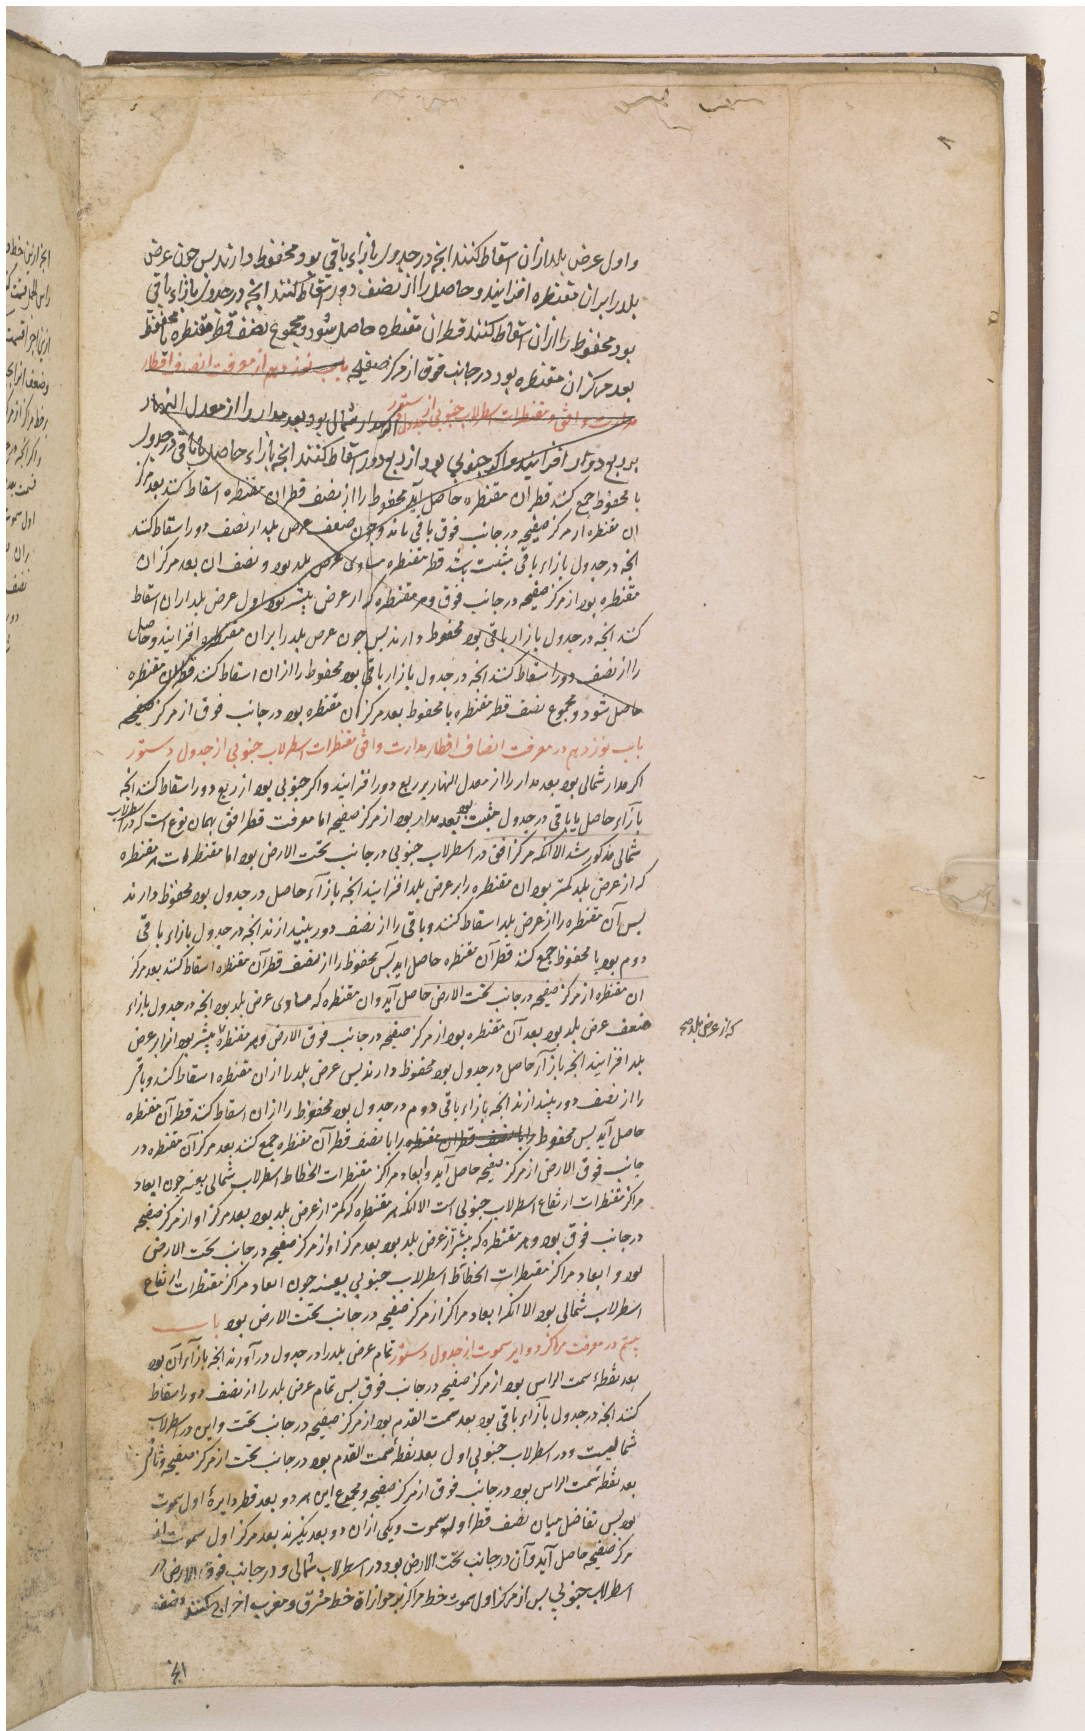 ۸
و اول عرض بلد ازان اسقاط کنند انچه در جدول بازاء باقی بود محفوظ دارند بس چون عرض
بلد را بران مقنطره افزایند و حاصل را از نصف دور اسقاط کنند انچه در جدول بازاء باقی
بود محفوظ را ازان اسقاط کنند قطر ان مقنطره حاصل شود و مجموع نصف قطر مقنطره با محفوظ
بعد مرکز ان مقنطره بود در جانب فوق از مرکز صفیحه باب نوزدهم از معرفت انصاف اقطار
مدارت و افق و مقنطرات اسطرلاب جنوبی از جدول دستور اکر مدار شمالی بود بعد مدار را از معدل النهار
بر ربع دور افزایند و اکر جنوبی بود از ربع دور اسقاط کنند انچه بازاء حاصل یا باقی در جدول
با محفوظ جمع کنند قطر ان مقنطره حاصل اید محفوظ را از نصف قطر ان مقنطره اسقاط کنند بعد مرکز
ان مقنطره از مرکز صفیحه در جانب فوق باقی ماند و چون ضعف عرض بلد از نصف دور اسقاط کنند
انچه در جدول بازاء باقی مثبت باشد قطر مقنطره مساوی عرض بلد بود و نصف ان بعد مرکز ان
مقنطره بود از مرکز صفیحه در جانب فوق و هر مقنطره که از عرض بیشتر بود اول عرض بلد ازان اسقاط
کنند انچه در جدول بازاء باقی بود محفوظ دارند بس چون عرض بلد را بران مقنطره افزایند و حاصل
را از نصف دور اسقاط کنند انچه در جدول بازاء باقی بود محفوظ را ازان اسقاط کنند قطر ان مقنطره
حاصل شود و مجموع نصف قطر مقنطره با محفوظ بعد مرکز ان مقنطره بود در جانب فوق از مرکز صفیحه
باب نوزدهم در معرفت انصاف اقطار مدارت و افق مقنطرات اسطرلاب جنوبی از جدول دستور
اکر مدار شمالی بود بعد مدار را از معدل النهار بر ربع دور افزایند و اکر جنوبی بود از ربع دور اسقاط کنند انچه
بازآء حاصل یا باقی در جدول مثبت بود بعد مدار بود از مرکز صفیحه اما معرفت قطر افق بهمان نوع است که در اسطرلاب
شمالی مذکور شد الا انکه مرکز افق در اسطرلاب جنوبی در جانب تحت الارض بود اما مقنطرات هر مقنطره
که از عرض بلد کمتر بود ان مقنطره را بر عرض بلد افزایند انچه بازآء حاصل در جدول بود محفوظ دارند
بس آن مقنطره را از عرض بلد اسقاط کنند و باقی را از نصف دور بیندازند انچه در جدول بازاء باقی
دوم بود با محفوظ جمع کنند قطر آن مقنطره حاصل اید بس محفوظ را از نصف قطر آن مقنطره اسقاط کنند بعد مرکز
ان مقنطره از مرکز صفیحه در جانب تحت الارض حاصل آید و ان مقنطره که مساوی عرض بلد بود انچه در جدول بازاء
ضعف عرض بلد بود بعد آن مقنطره بود از مرکز صفیحه در جانب فوق الارض و هر مقنطره بیشتر بود انرا بر عرض
که از عرض بلد صح
بلد افزایند انچه بازآء حاصل در جدول بود محفوظ دارند بس عرض بلد را ازان مقنطره اسقاط کنند و باقی
را از نصف دور بیندازند انچه بازاء باقی دوم در جدول بود محفوظ را ازان اسقاط کنند قطر آن مقنطره
حاصل آید بس محفوظ را با نصف قطر ان مقنطره را با نصف قطر آن مقنطره جمع کنند بعد مرکز آن مقنطره در
جانب فوق الارض از مرکز صفیحه حاصل آید و ابعاد مراکز مقنطرات انحطاط اسطرلاب شمالی بعینه چون ابعاد
مراکز مقنطرات ارتفاع اسطرلاب جنوبی است الا انکه هر مقنطره که کمتر از عرض بلد بود بعد مرکز او از مرکز صفیحه
در جانب فوق بود و هر مقنطره که بیشتر از عرض بلد بود بعد مرکز او از مرکز صفیحه در جانب تحت الارض
بود و ابعاد مراکز مقنطرات انحطاط اسطرلاب جنوبی بعینه چون ابعاد مراکز مقنطرات ارتفاع
اسطرلاب شمالی بود الا انکه ابعاد مراکز از مرکز صفیحه در جانب تحت الارض بود باب
بیستم در معرفت مراکز دوایر سموت از جدول دستور تمام عرض بلد را در جدول در آورند انچه بازآء آن بود
بعد نقطه سمت الراس بود از مرکز صفیحه در جانب فوق بس تمام عرض بلد را از نصف دور اسقاط
کنند انچه در جدول بازآء باقی بود بعد سمت القدم بود از مرکز صفیحه در جانب تحت و این در اسطرلاب
شمالیست و در اسطرلاب جنوبی اول بعد نقطه سمت القدم بود در جانب تحت از مرکز صفیحه و ثانی
بعد نقطه سمت الراس بود در جانب فوق از مرکز صفیحه و مجموع این هر دو بعد قطر دایرهٔ اول سموت
بود بس تفاضل میان نصف قطر اول سموت و یکی ازان دو بعد بکیرند بعد مرکز اول سموت از
مرکز صفیحه حاصل آید و آن در جانب تحت الارض بود در اسطرلاب شمالی و در جانب فوق الارض در
اسطرلاب جنوبی بس از مرکز اول سموت خط مراکز بر موازاة خط مشرق و مغرب اخراج کنند و نصف